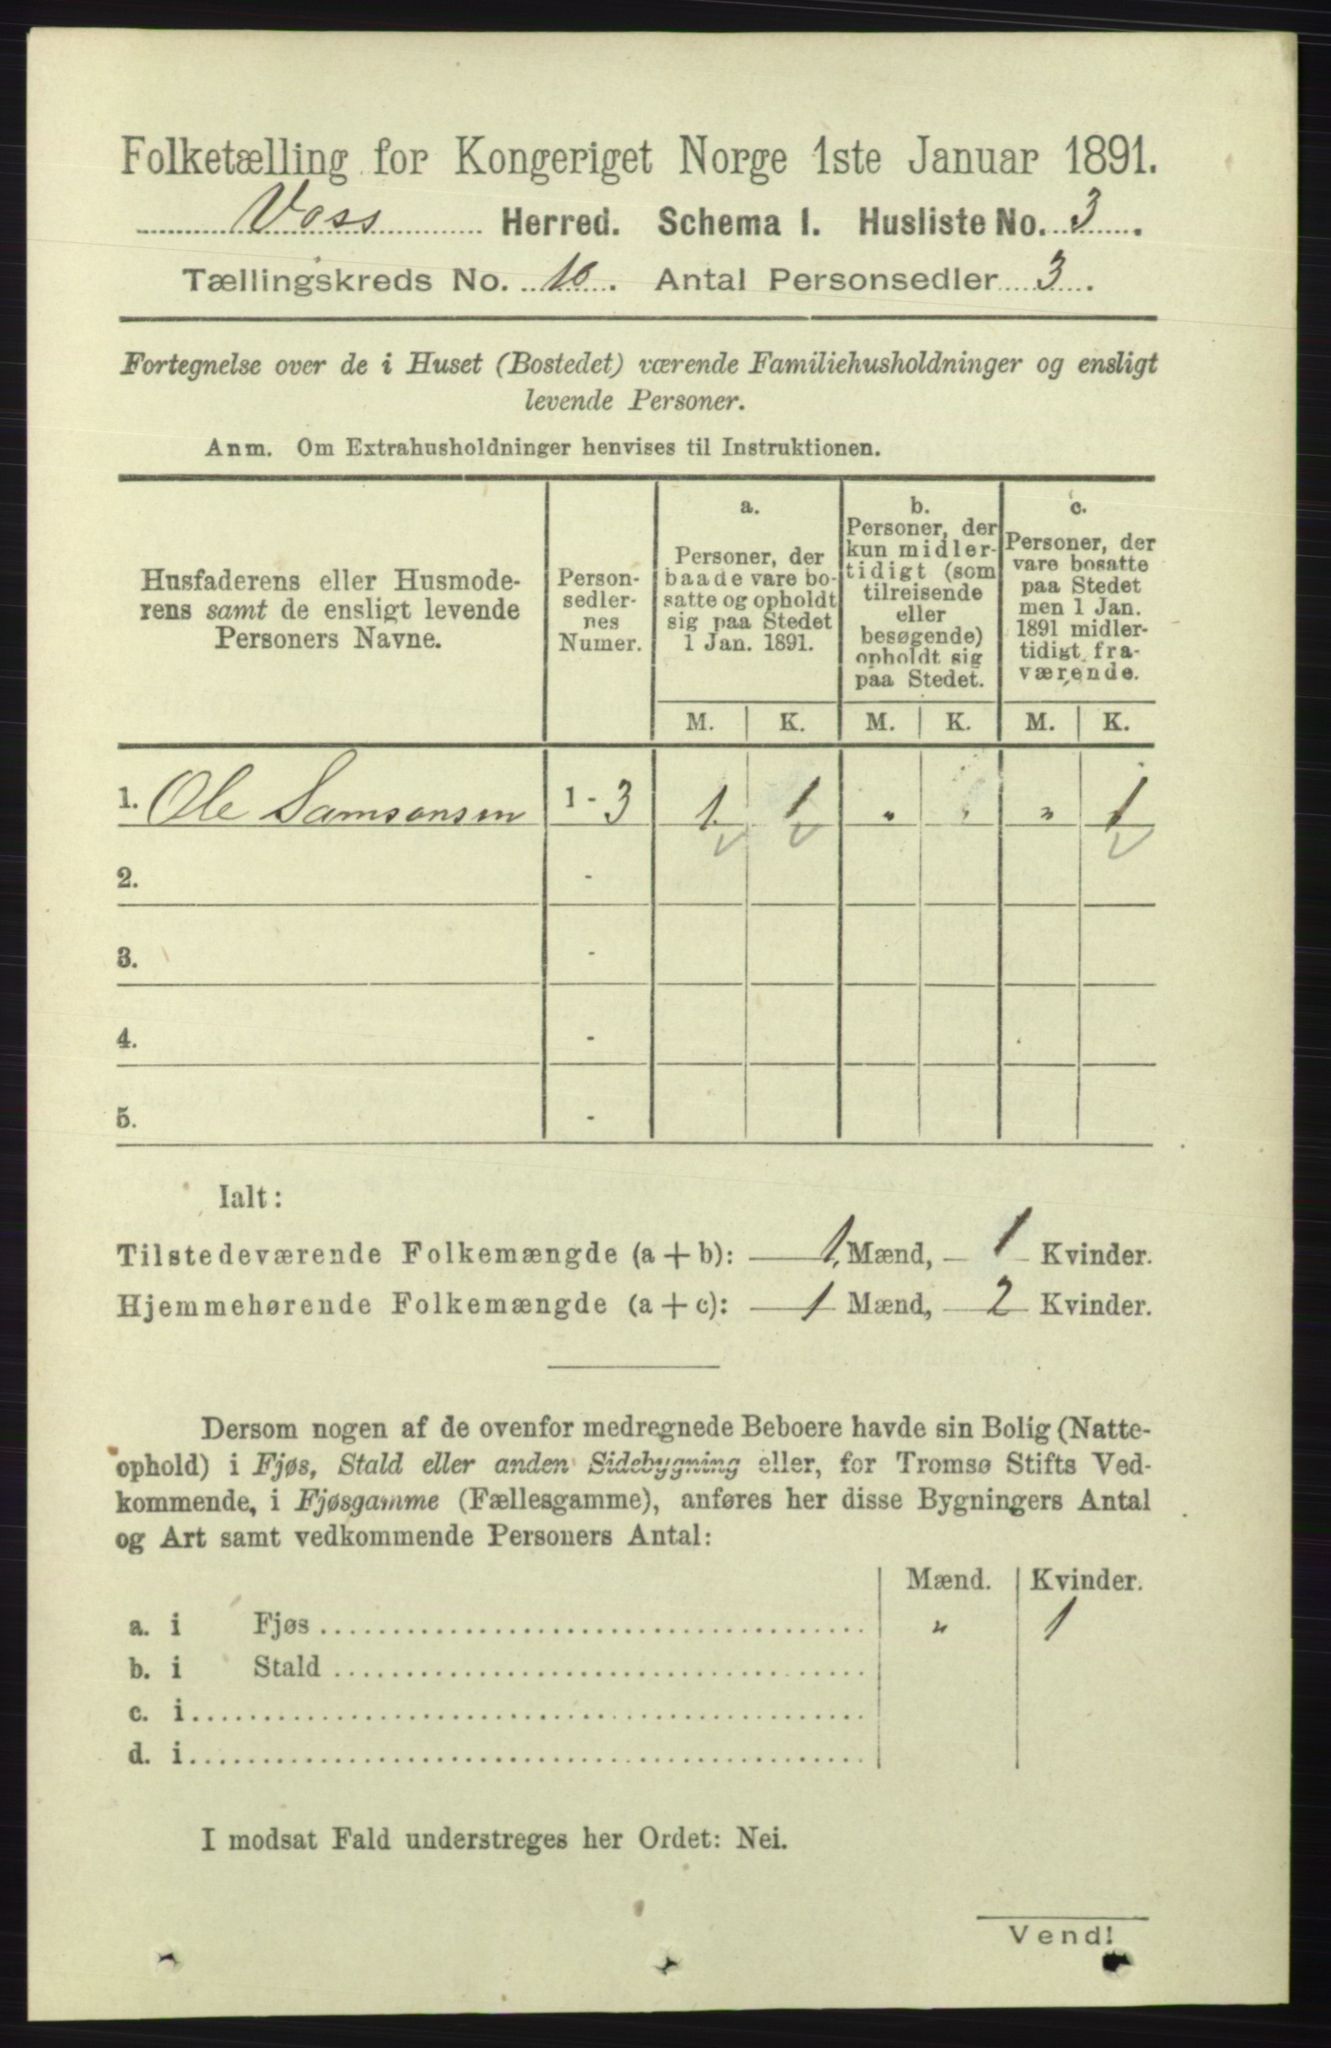 Folketælling for Kongeriget Norge 1ste Januar 1891.
Voss Herred. Schema 1. Husliste No. 3.
Tællingskreds No. 10. Antal Personsedler 3.
Fortegnelse over de i Huset (Bostedet) værende Familiehusholdninger og ensligt
levende Personer.
Anm. Om Extrahusholdninger henvises til Instruktionen.
Husfaderens eller Husmode-
rens samt de ensligt levende
Personers Navne.
Person-
sedler-
nes
Numer.
a.
Personer, der
baade vare bo-
satte og opholdt
sig paa Stedet
1 Jan. 1891.
b.
Personer, der
kun midler-
tidigt (som
tilreisende
eller
besøgende)
opholdt sig
paa Stedet.
c.
Personer, der
vare bosatte
paa Stedet
men 1 Jan.
1891 midler-
tidigt fra-
værende.
M. K. M. K. M. K.
1. Ole Samsonsen 1 - 3 1. 1 " " " 1
2. -
3. -
4. -
5. -
Ialt:
Tilstedeværende Folkemængde (a + b): 1. Mænd, 1 Kvinder.
Hjemmehørende Folkemængde (a + c): 1 Mænd, 2 Kvinder.
Dersom nogen af de ovenfor medregnede Beboere havde sin Bolig (Natte-
ophold) i Fjøs, Stald eller anden Sidebygning eller, for Tromsø Stifts Ved-
kommende, i Fjøsgamme (Fællesgamme), anføres her disse Bygningers Antal
og Art samt vedkommende Personers Antal:
Mænd. Kvinder.
a. i Fjøs " 1
b. i Stald
c. i
d. i
I modsat Fald understreges her Ordet: Nei.
Vend!